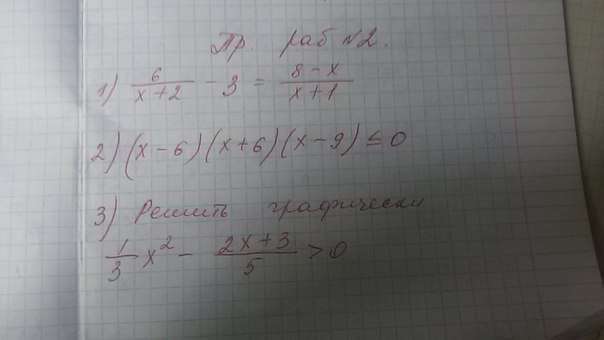 Пр. раб №2.
1) 6/(x+2) - 3 = (8-x)/(x+1)
2) (x-6)(x+6)(x-9) ≤ 0
3) Решить графически
1/3 x² - (2x+3)/5 > 0